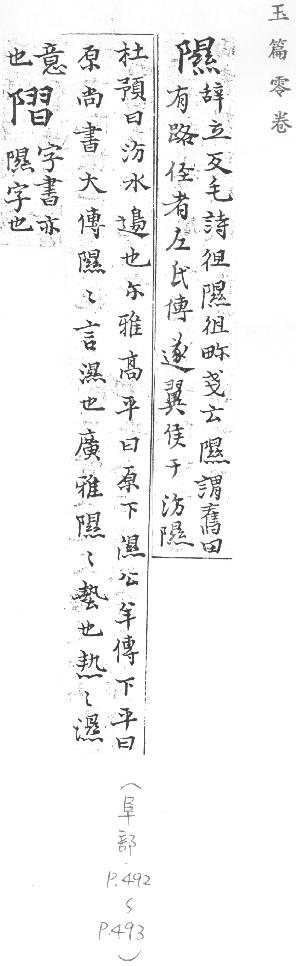 玉篇零卷
隰辞立反毛詩徂隰徂畛戔云隰謂舊田
有路侄者左氏傳遂翼侯于汾隰
杜預曰汾水邉也尒雅髙平曰原下濕公羊傳下平曰
原尚書大傳隰〻言濕也廣雅隰〻蟄也𤍠〻濕
意
也㗊字書亦
隰字也
(阜部
P.492
~
P.493)